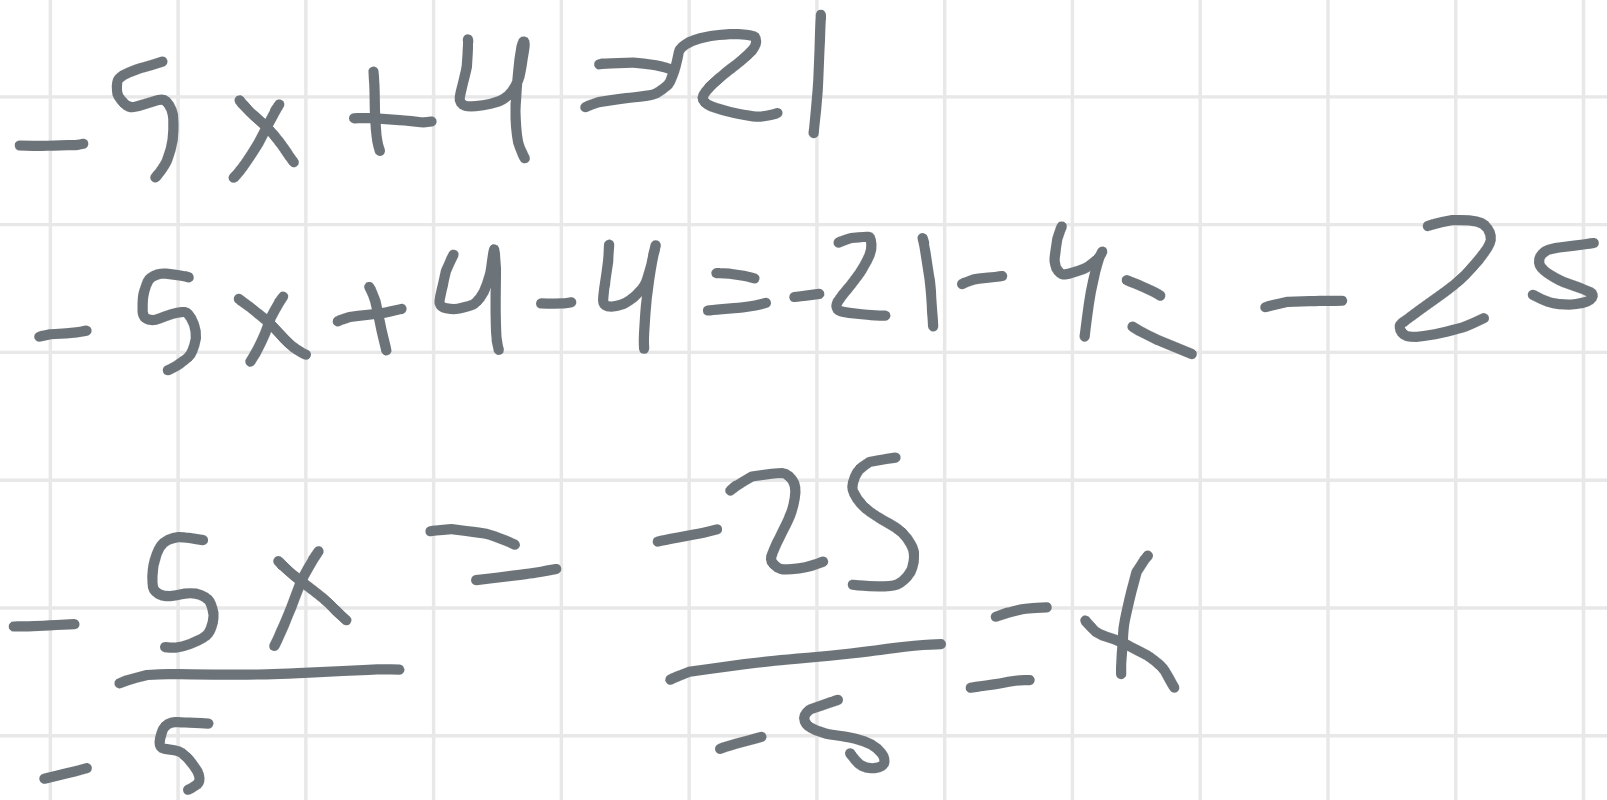 -5x+4=21
-5x+4-4=-21-4=-25
-5x/-5 = -25/-5 = x